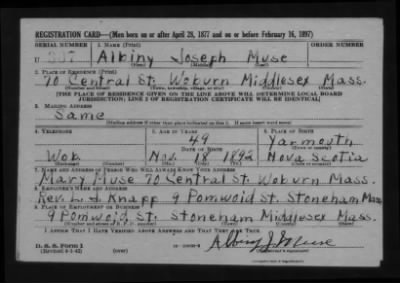 REGISTRATION CARD—(Men born on or after April 28, 1877 and on or before February 16, 1897)
SERIAL NUMBER 1. NAME (Print) ORDER NUMBER
U 307 Albiny Joseph Muse
(First) (Middle) (Last)
2. PLACE OF RESIDENCE (Print)
70 Central St. Woburn Middlesex Mass.
(Number and street) (Town, township, village, or city) (County) (State)
[THE PLACE OF RESIDENCE GIVEN ON THE LINE ABOVE WILL DETERMINE LOCAL BOARD
JURISDICTION; LINE 2 OF REGISTRATION CERTIFICATE WILL BE IDENTICAL]
3. MAILING ADDRESS
Same
[Mailing address if other than place indicated on line 2. If same insert word same]
4. TELEPHONE 5. AGE IN YEARS 6. PLACE OF BIRTH
49 Yarmouth
DATE OF BIRTH (Town or county)
Wob. Nov. 18 1892 Nova Scotia
(Exchange) (Number) (Mo.) (Day) (Yr.) (State or country)
7. NAME AND ADDRESS OF PERSON WHO WILL ALWAYS KNOW YOUR ADDRESS
Mary Muse 70 Central St. Woburn Mass.
8. EMPLOYER'S NAME AND ADDRESS
Rev. L. J. Knapp 9 Pomwoid St. Stoneham Mass
9. PLACE OF EMPLOYMENT OR BUSINESS
9 Pomwoid St. Stoneham Middlesex Mass.
(Number and street or R. F. D. number) (Town) (County) (State)
I AFFIRM THAT I HAVE VERIFIED ABOVE ANSWERS AND THAT THEY ARE TRUE.
D. S. S. Form 1
(Revised 4-1-42) (over) Albiny J. Muse
(Registrant's signature)